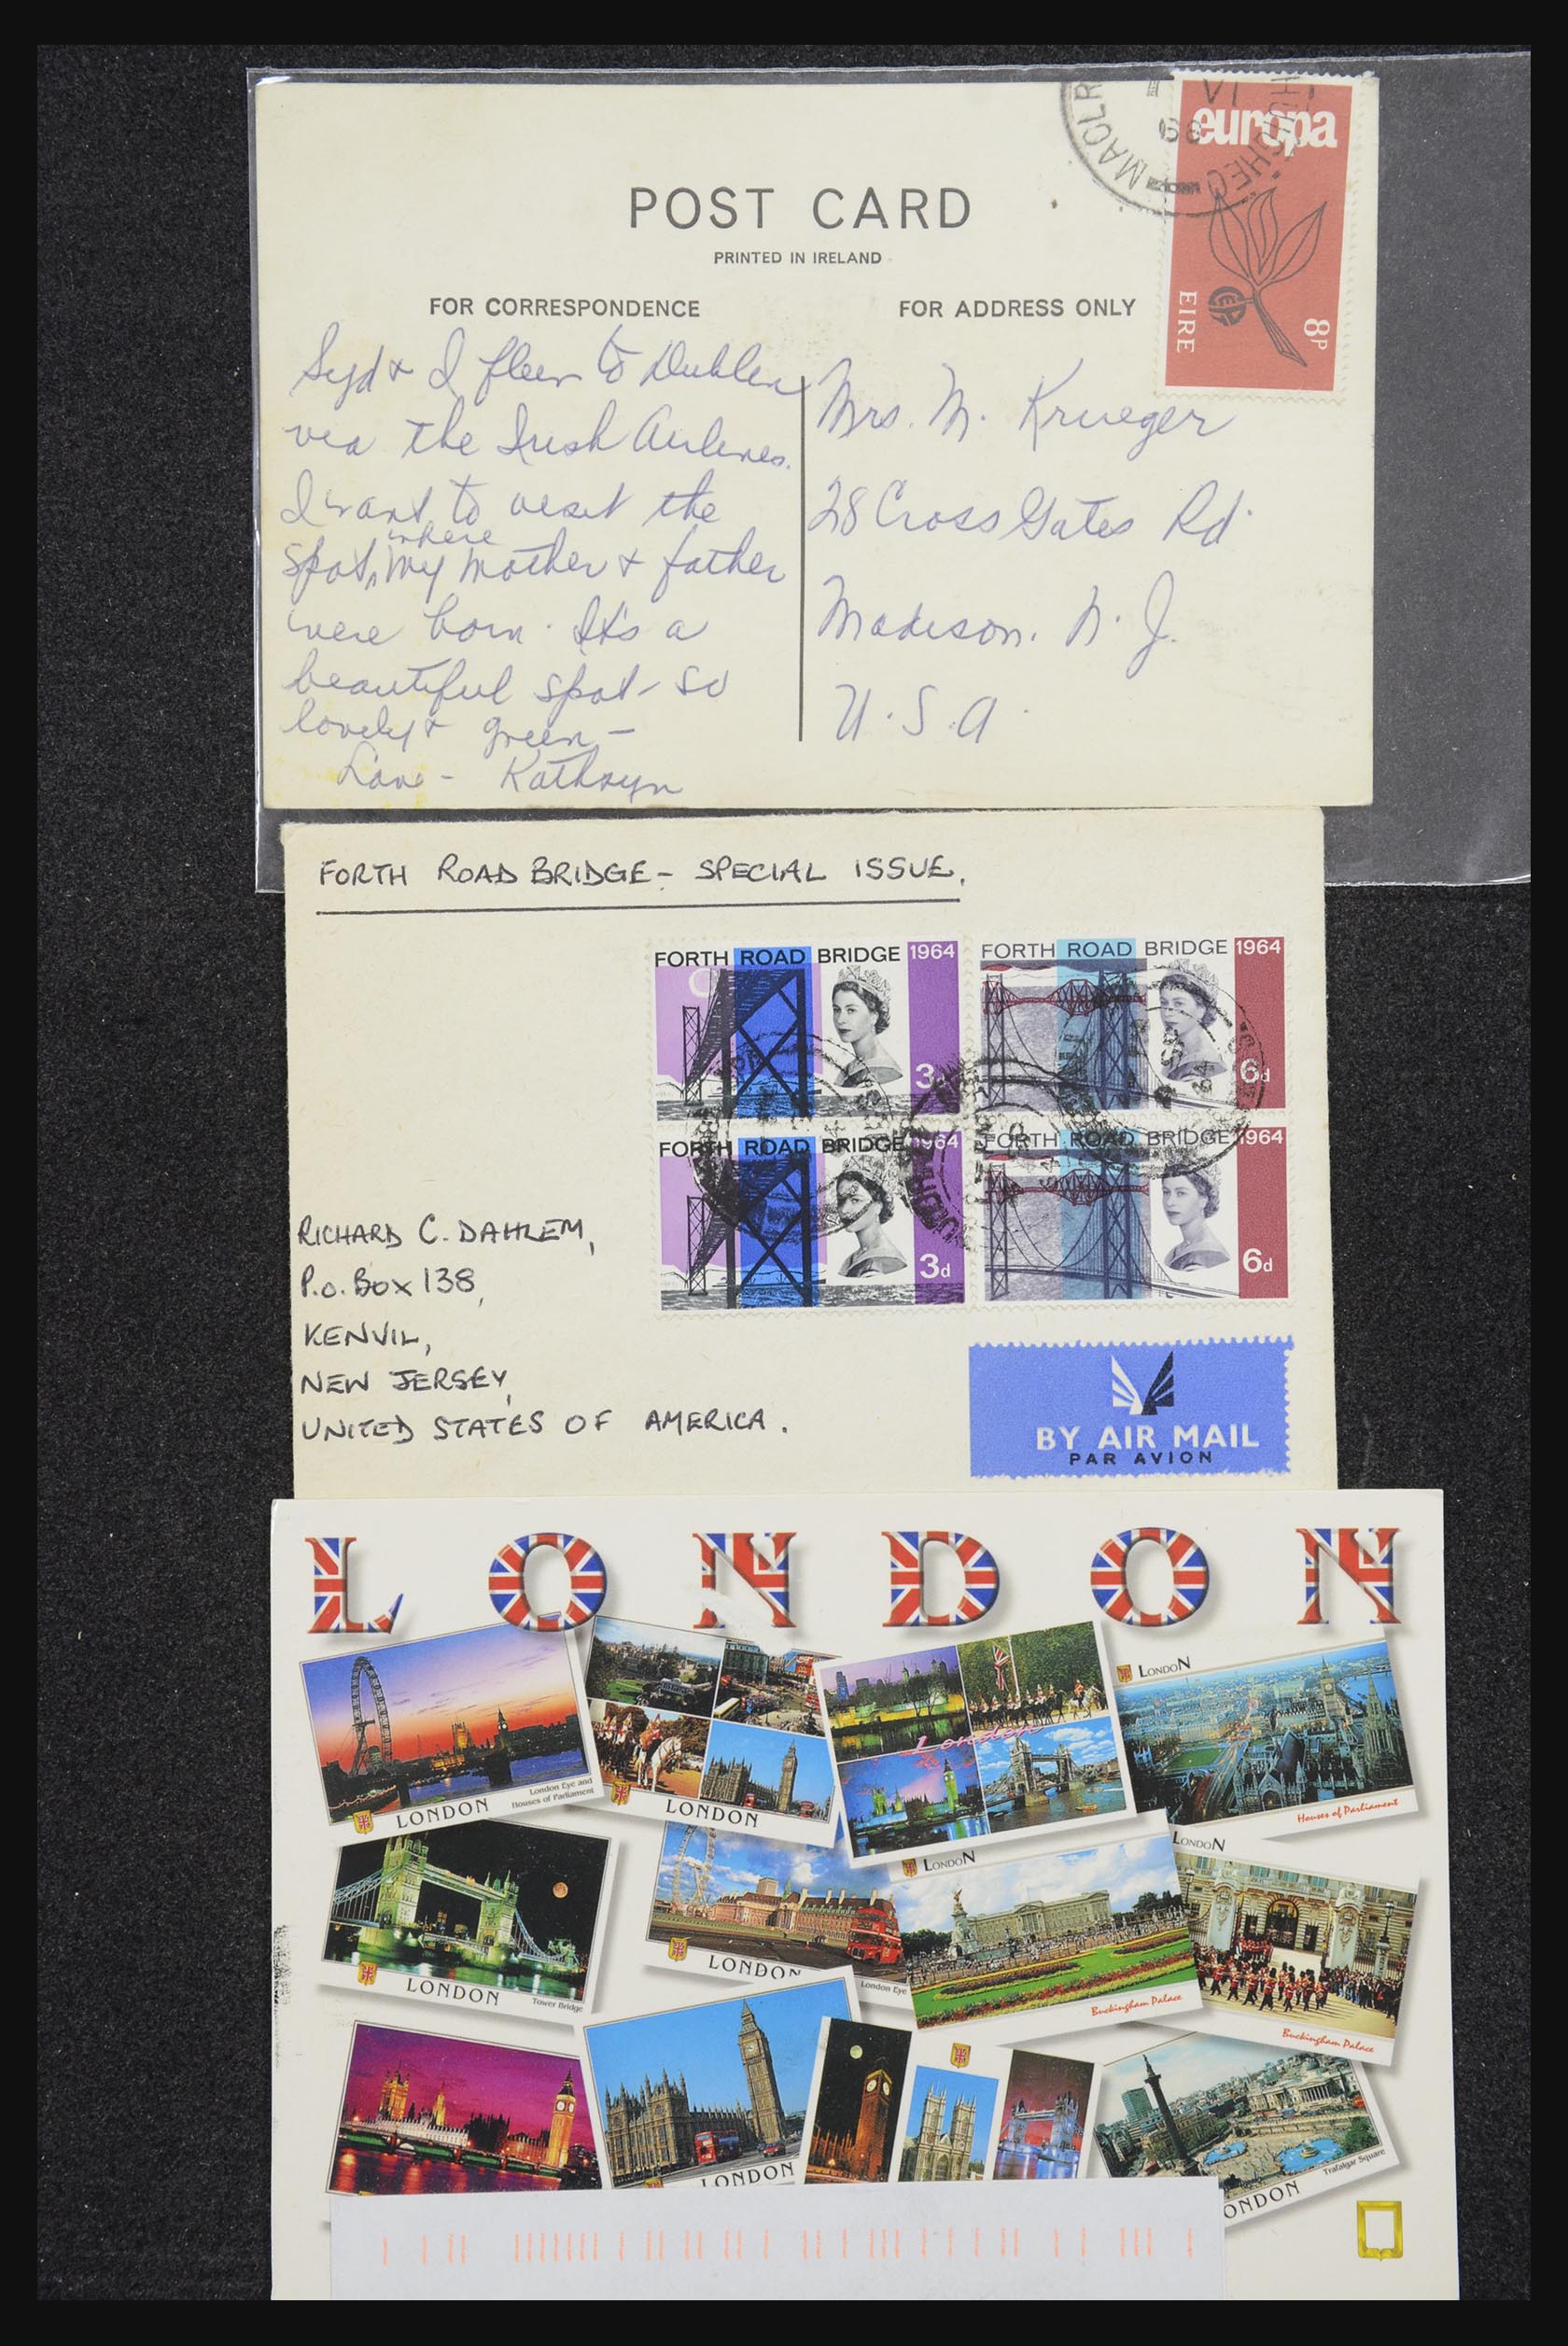 POST CARD
PRINTED IN IRELAND
FOR CORRESPONDENCE
FOR ADDRESS ONLY
europa
EIRE
8P
Syd & I flew to Dublin
via the Irish Airlines.
I want to visit the
spot, where my mother & father
were born. It's a
beautiful spot - so
lovely & green -
Love - Kathryn
Mrs. M. Krueger
28 Cross Gates Rd.
Madison. N. J.
U. S. A.
FORTH ROAD BRIDGE - SPECIAL ISSUE.
FORTH ROAD BRIDGE 1964
3d
FORTH ROAD BRIDGE 1964
6d
FORTH ROAD BRIDGE 1964
3d
FORTH ROAD BRIDGE 1964
6d
RICHARD C. DAHLEM,
P.O. BOX 138,
KENVIL,
NEW JERSEY,
UNITED STATES OF AMERICA.
BY AIR MAIL
PAR AVION
LONDON
LONDON
London Eye and
Houses of Parliament
LONDON
London
LONDON
Houses of Parliament
LONDON
Tower Bridge
LONDON
London Eye
LONDON
Buckingham Palace
LONDON
Buckingham Palace
LONDON
ONDON
Trafalgar Square